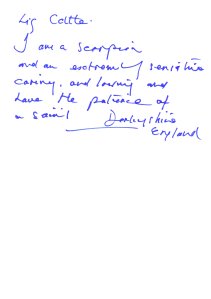 Liz Cotte.
I am a scorpion
and an extremely sensitive
caring, and loving and
have the patience of
a saint Derbyshire
England